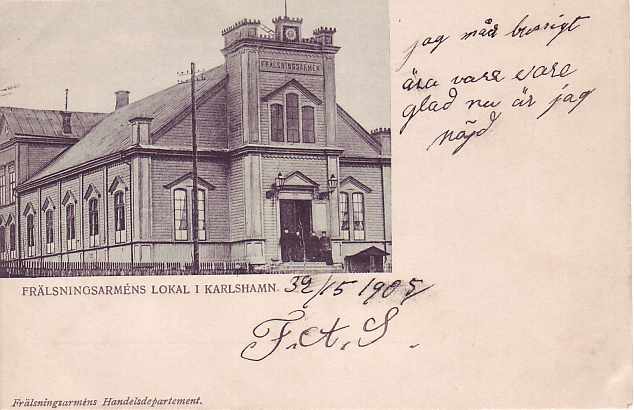 FRÄLSNINGSARMÉN
jag mår bussigt
ära vare vare
glad nu är jag
nöjd
FRÄLSNINGSARMÉNS LOKAL I KARLSHAMN.
/5 1905
F. A. S.
Frälsningsarméns Handelsdepartement.